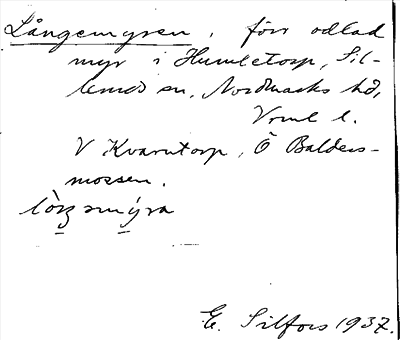 Långemyren, förr odlad
myr i Humletorp, Sil-
lerud sn, Nordmarks hd,
Vrml l.
V Kvarntorp, Ö Balders-
mossen.
E. Silfors 1937.